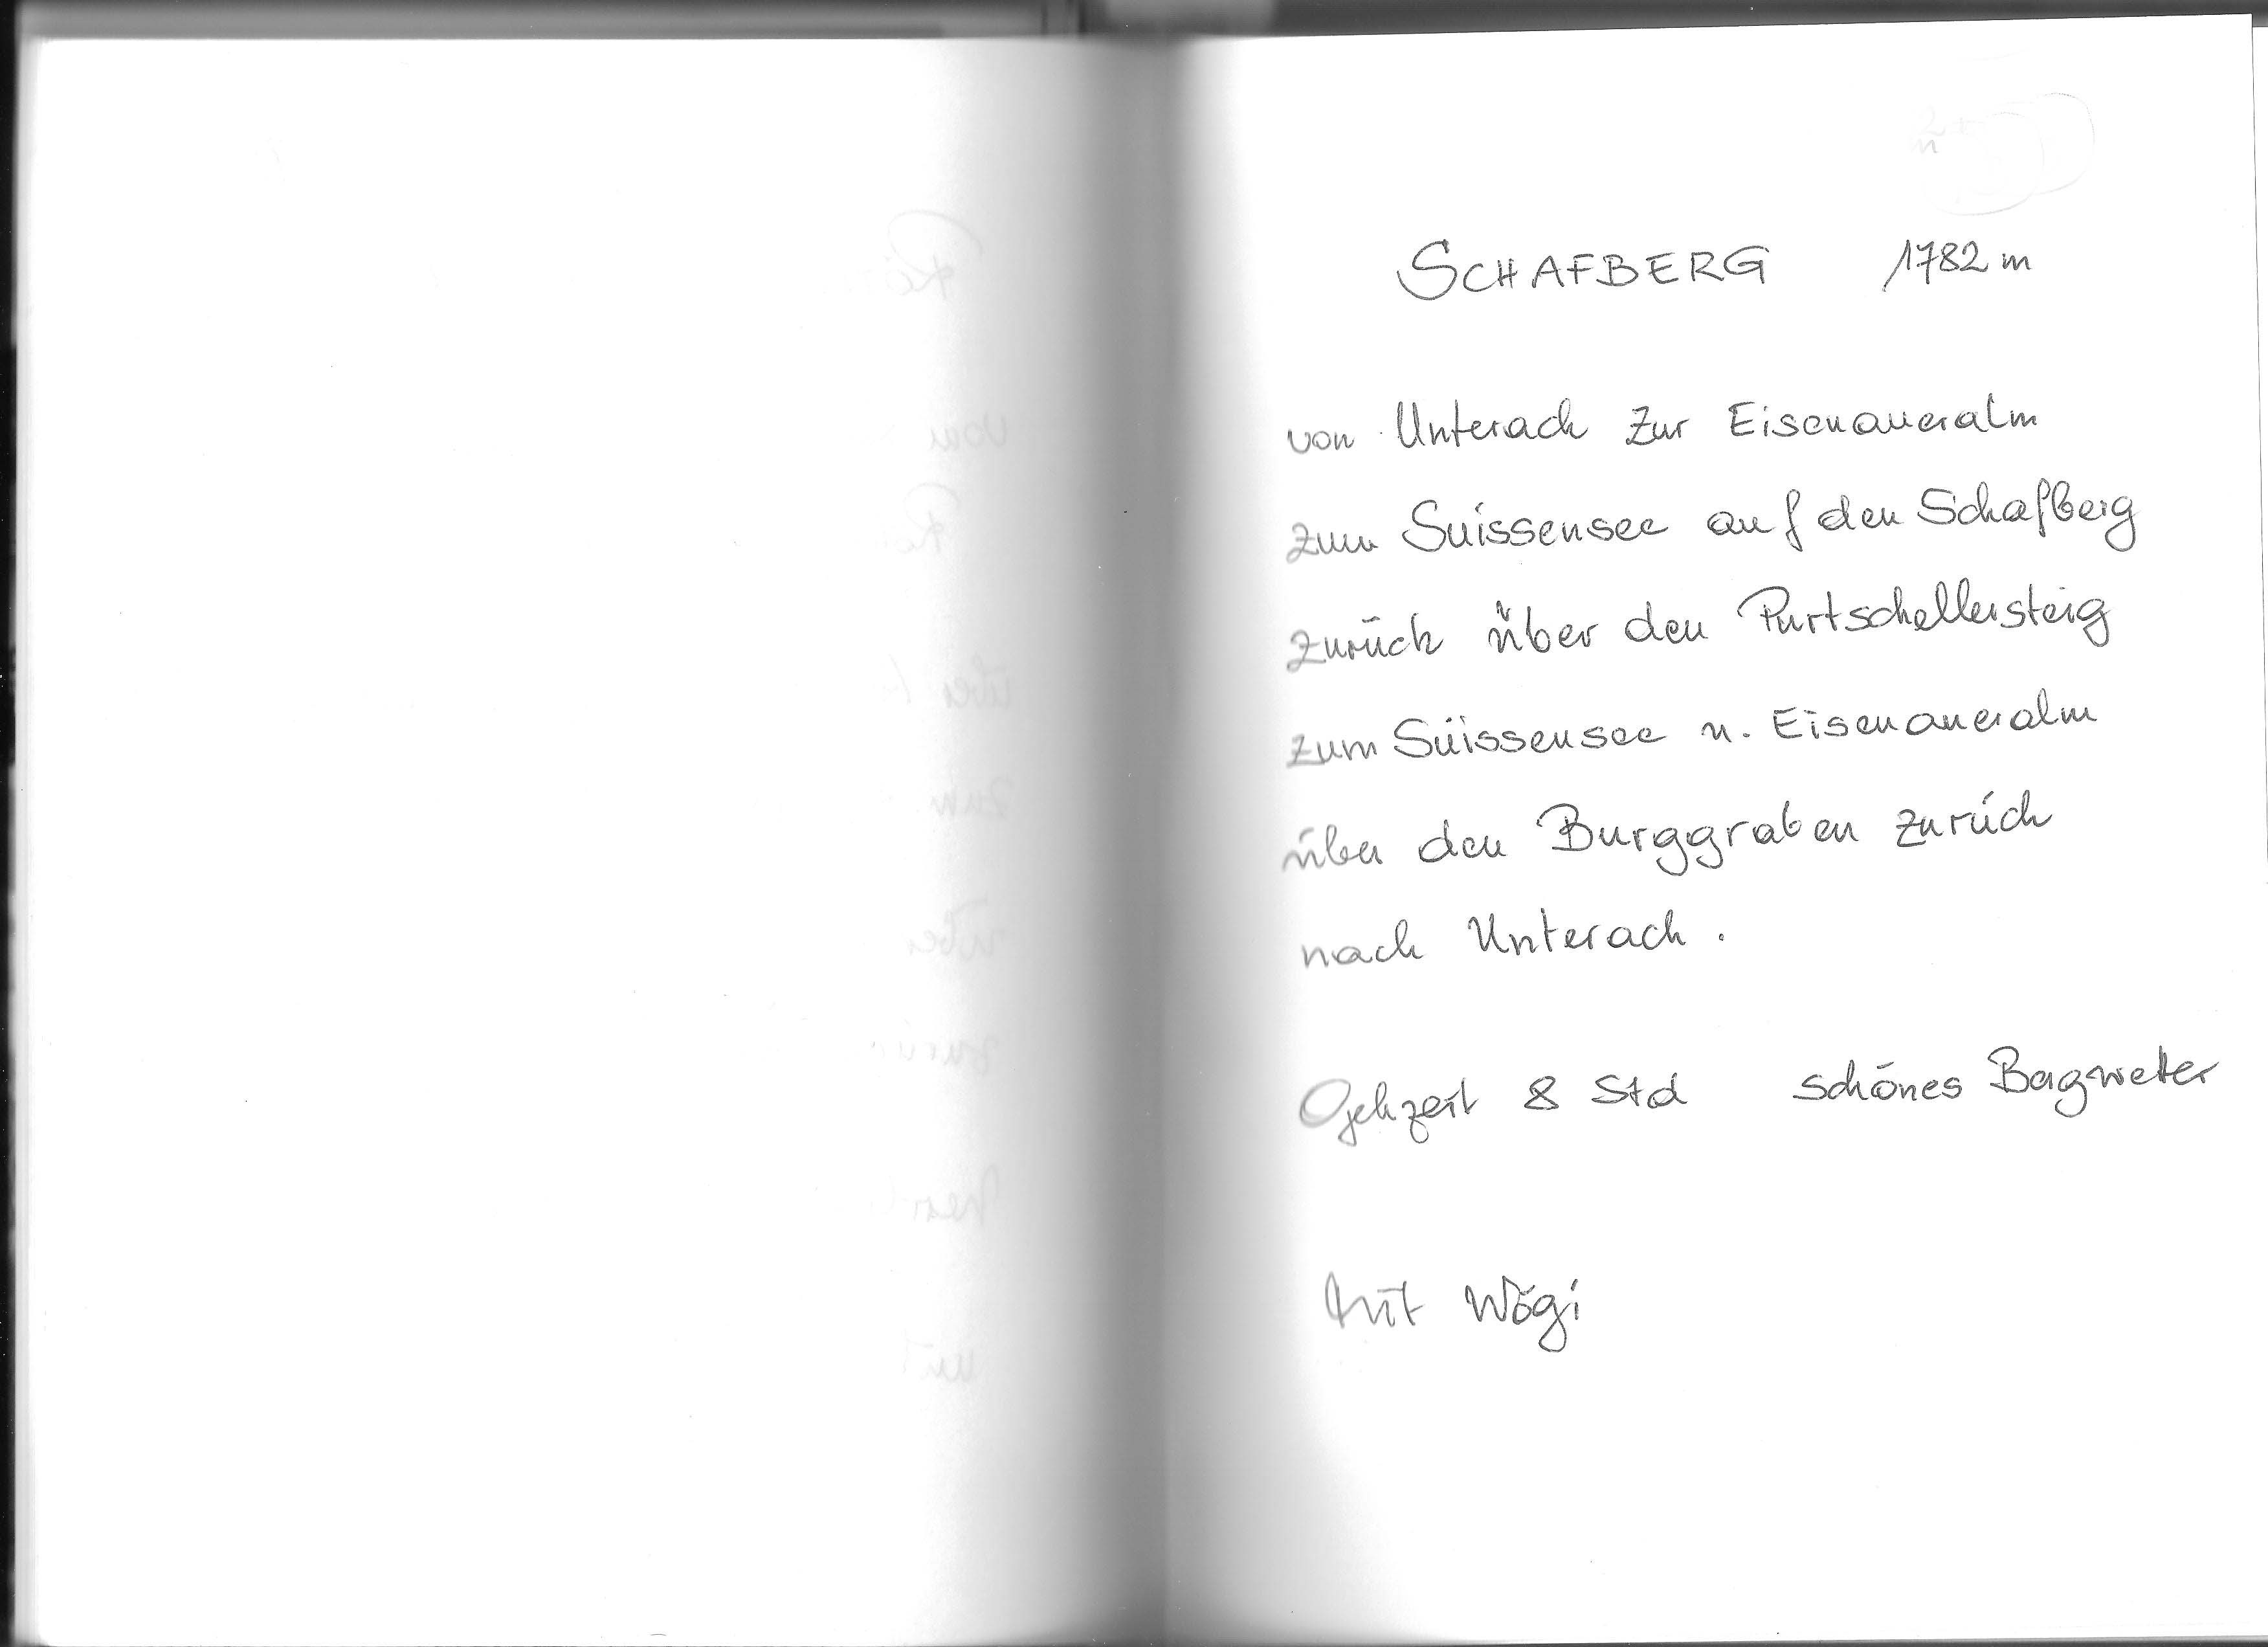 SCHAFBERG 1782 m
von Unterach zur Eisenaueralm
zum Suissensee auf den Schafberg
zurück über den Purtschellersteig
zum Süissensee u. Eisenaueralm
über den Burggraben zurück
nach Unterach.
Gehzeit 8 Std schönes Bergwetter
Mit Wögi